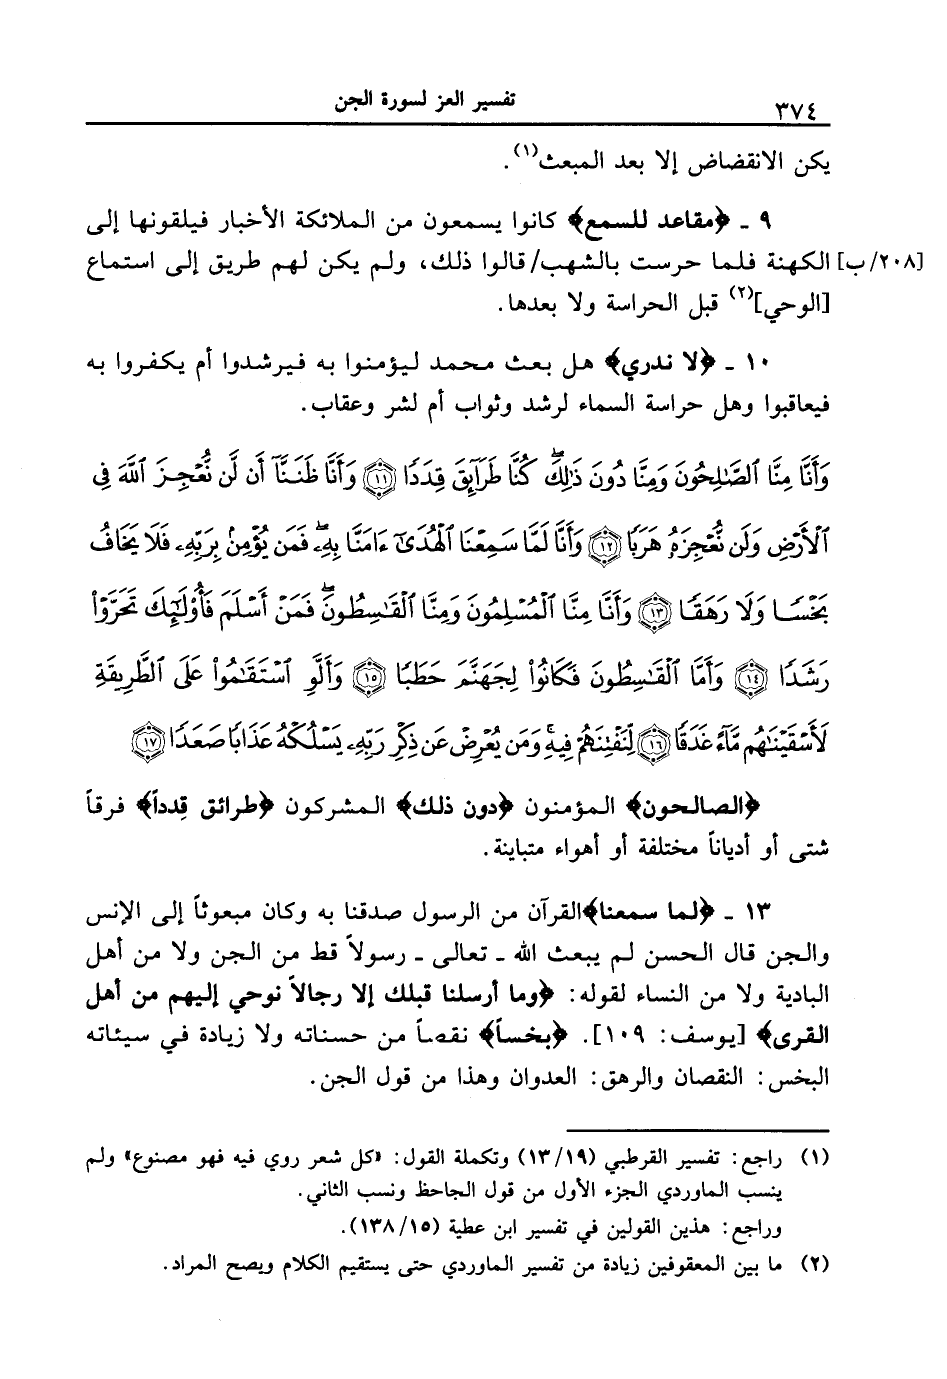 ٣٧٤ تفسير العز لسورة الجن
يكن الانقضاض إلا بعد المبعث(١).
٩ ـ ﴿مقاعد للسمع﴾ كانوا يسمعون من الملائكة الأخبار فيلقونها إلى
[٢٠٨/ب] الكهنة فلما حرست بالشهب/ قالوا ذلك، ولم يكن لهم طريق إلى استماع
[الوحي](٢) قبل الحراسة ولا بعدها.
١٠ ـ ﴿لا ندري﴾ هل بعث محمد ليؤمنوا به فيرشدوا أم يكفروا به
فيعاقبوا وهل حراسة السماء لرشد وثواب أم لشر وعقاب.
وَأَنَّا مِنَّا ٱلصَّٰلِحُونَ وَمِنَّا دُونَ ذَٰلِكَۖ كُنَّا طَرَآئِقَ قِدَدًا ﴿١١﴾ وَأَنَّا ظَنَنَّآ أَن لَّن نُّعْجِزَ ٱللَّهَ فِى
ٱلْأَرْضِ وَلَن نُّعْجِزَهُۥ هَرَبًا ﴿١٢﴾ وَأَنَّا لَمَّا سَمِعْنَا ٱلْهُدَىٰٓ ءَامَنَّا بِهِۦۖ فَمَن يُؤْمِنۢ بِرَبِّهِۦ فَلَا يَخَافُ
بَخْسًا وَلَا رَهَقًا ﴿١٣﴾ وَأَنَّا مِنَّا ٱلْمُسْلِمُونَ وَمِنَّا ٱلْقَٰسِطُونَۖ فَمَنْ أَسْلَمَ فَأُو۟لَٰٓئِكَ تَحَرَّوْا۟
رَشَدًا ﴿١٤﴾ وَأَمَّا ٱلْقَٰسِطُونَ فَكَانُوا۟ لِجَهَنَّمَ حَطَبًا ﴿١٥﴾ وَأَلَّوِ ٱسْتَقَٰمُوا۟ عَلَى ٱلطَّرِيقَةِ
لَأَسْقَيْنَٰهُم مَّآءً غَدَقًا ﴿١٦﴾ لِّنَفْتِنَهُمْ فِيهِۚ وَمَن يُعْرِضْ عَن ذِكْرِ رَبِّهِۦ يَسْلُكْهُ عَذَابًا صَعَدًا ﴿١٧﴾
﴿الصالحون﴾ المؤمنون ﴿دون ذلك﴾ المشركون ﴿طرائق قِدداً﴾ فرقاً
شتى أو أدياناً مختلفة أو أهواء متباينة.
١٣ ـ ﴿لما سمعنا﴾ القرآن من الرسول صدقنا به وكان مبعوثاً إلى الإنس
والجن قال الحسن لم يبعث الله ـ تعالى ـ رسولاً قط من الجن ولا من أهل
البادية ولا من النساء لقوله: ﴿وما أرسلنا قبلك إلا رجالاً نوحي إليهم من أهل
القرى﴾ [يوسف: ١٠٩]. ﴿بخساً﴾ نقصاً من حسناته ولا زيادة في سيئاته
البخس: النقصان والرهق: العدوان وهذا من قول الجن.
(١) راجع: تفسير القرطبي (١٣/١٩) وتكملة القول: «كل شعر روي فيه فهو مصنوع» ولم
ينسب الماوردي الجزء الأول من قول الجاحظ ونسب الثاني.
وراجع: هذين القولين في تفسير ابن عطية (١٣٨/١٥).
(٢) ما بين المعقوفين زيادة من تفسير الماوردي حتى يستقيم الكلام ويصح المراد.